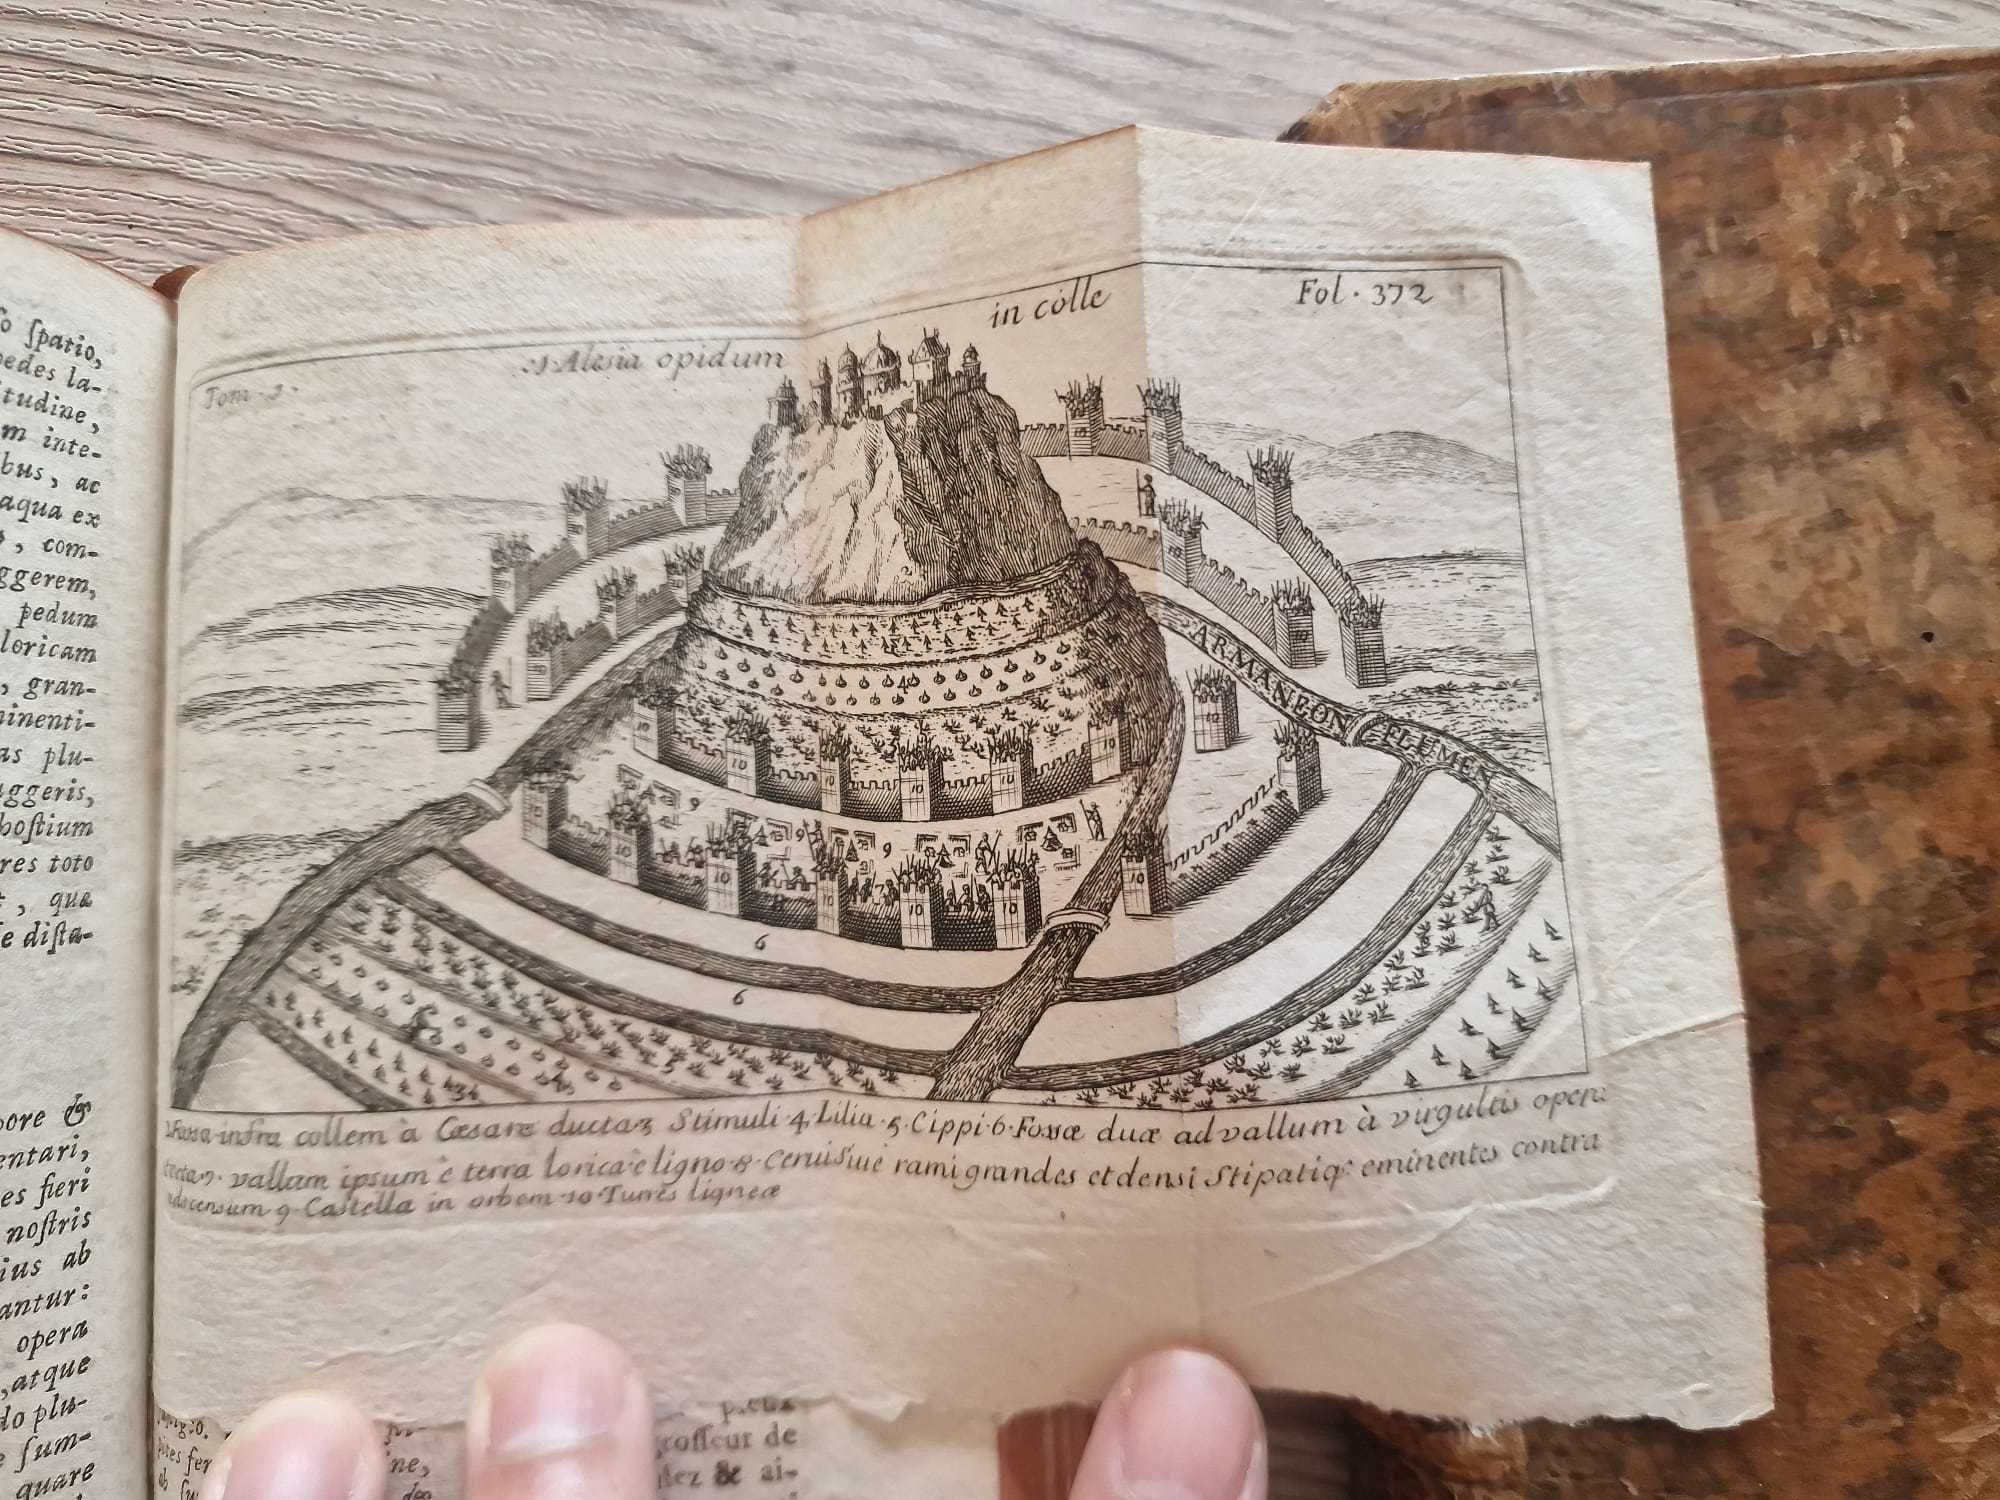 ſpatio,
pedes la-
itudine,
m inte-
bus, ac
aqua ex
, com-
ggerem,
pedum
loricam
, gran-
minenti-
as plu-
aggeris,
hoſtium
res toto
, quæ
e diſta-
pore &
entari,
es fieri
noſtris
ius ab
antur:
opera
,atque
do plu-
ſum-
quare
Tom. 2.
Fol. 372
1. Alesia opidum in colle
ARMANEON FLUMEN
2
4
3
10 10 10 10 10 10
9 9 9
10 10 10 10 10 10 10
7
6
6
5
4
3
2 Fossa infra collem à Cæsare ducta 3 Stimuli 4 Lilia 5 Cippi 6 Fossæ duæ ad vallum à virgultis opera
tecta 7 vallam ipsum è terra lorica è ligno 8 Cervisiue rami grandes et densi Stipatiq: eminentes contra
adscensum 9 Castella in orbem 10 Turres ligneæ
groſſeur de
& ai-
ne,